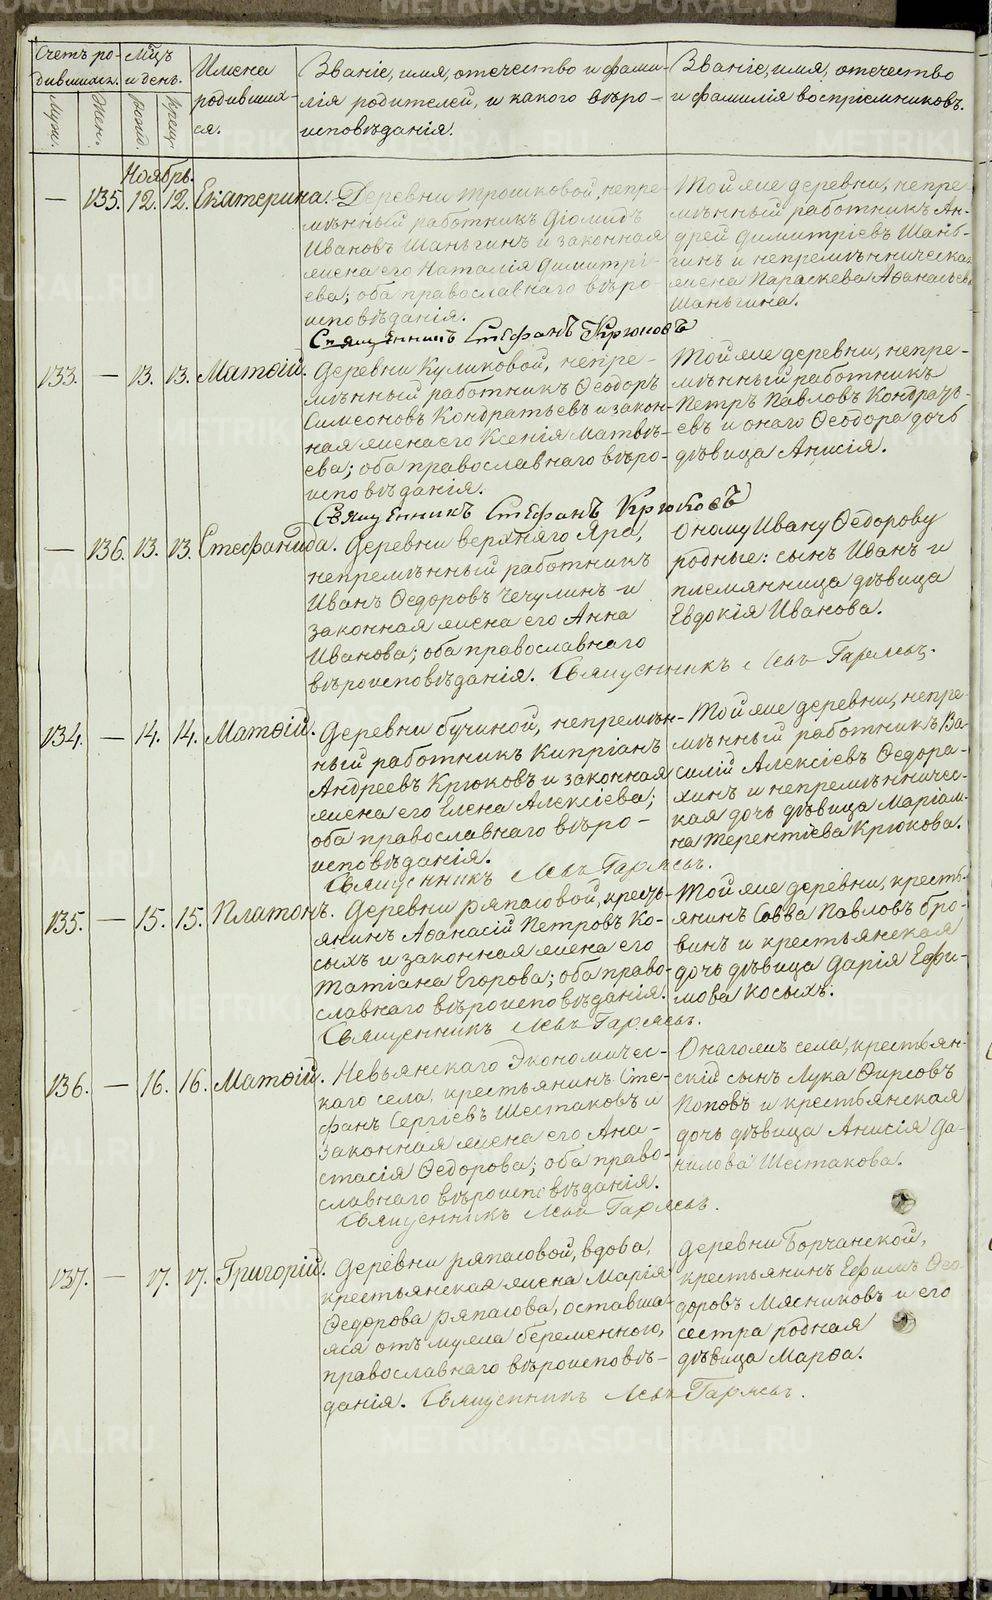 Счетъ ро-
дившихся.
Муж.
Жен.
Мцъ
и день.
Рожд.
Крещ.
Имена
родивших-
ся.
Званіе, имя, отечество и фами-
лія родителей, и какого вѣро-
исповѣданія.
Званіе, имя, отечество
и фамилія воспріемниковъ.
Ноябрь.
— 135. 12. 12. Екатерина.
Деревни Трошковой, непре-
мѣнный работникъ Діомидъ
Ивановъ Шаньгинъ и законная
жена его Наталія Димитрі-
ева; оба православнаго вѣро-
исповѣданія.
Той же деревни, непре-
мѣнный работникъ Ан-
дрей Димитріевъ Шань-
гинъ и непремѣнническая
жена Параскева Аѳанасьева
Шаньгина.
Священникъ Стефанъ Крюковъ
133. — 13. 13. Матѳій.
Деревни Куликовой, непре-
мѣнный работникъ Ѳеодоръ
Симеоновъ Кондратьевъ и закон-
ная жена его Ксенія Матвѣ-
ева; оба православнаго вѣро-
исповѣданія.
Той же деревни, непре-
мѣнный работникъ
Петръ Павловъ Кондрать-
евъ и онаго Ѳеодора дочь
дѣвица Анисія.
Священникъ Стефанъ Крюковъ
— 136. 13. 13. Стефанида.
Деревни верхняго Яра,
непремѣнный работникъ
Иванъ Ѳедоровъ Чечулинъ и
законная жена его Анна
Иванова; оба православнаго
вѣроисповѣданія. Священникъ Левъ Гаряевъ.
Оному Ивану Ѳедорову
родные: сынъ Иванъ и
племянница дѣвица
Евдокія Иванова.
134. — 14. 14. Матѳій.
Деревни бучиной, непремѣн-
ный работникъ Кипріанъ
Андреевъ Крюковъ и законная
жена его Елена Алексіева;
оба православнаго вѣро-
исповѣданія.
Той же деревни, непре-
мѣнный работникъ Ва-
силій Алексіевъ Ѳедора-
хинъ и непремѣнничес-
кая дочь дѣвица Маріам-
на Терентіева Крюкова.
Священникъ Левъ Гаряевъ.
135. — 15. 15. Платонъ.
Деревни ряпасовой, кресть-
янинъ Аѳанасій Петровъ Ко-
сыхъ и законная жена его
Татіана Егорова; оба право-
славнаго вѣроисповѣданія.
Той же деревни, кресть-
янинъ Савва Павловъ бро-
винъ и крестьянская
дочь дѣвица Дарія Ефи-
мова Косыхъ.
Священникъ Левъ Гаряевъ.
136. — 16. 16. Матѳій.
Невьянскаго Экономичес-
каго села, крестьянинъ Сте-
фанъ Сергіевъ Шестаковъ и
законная жена его Ана-
стасія Ѳедорова; оба право-
славнаго вѣроисповѣданія.
Онагожъ села, крестьян-
скій сынъ Лука Ѳирсовъ
Поповъ и крестьянская
дочь дѣвица Анисія Да-
нилова Шестакова.
Священникъ Левъ Гаряевъ.
137. — 17. 17. Григорій.
Деревни ряпасовой, вдова,
крестьянская жена Марія
Ѳедорова ряпасова, оставша-
яся отъ мужа беременною,
православнаго вѣроисповѣ-
данія. Священникъ Левъ Гаряевъ.
Деревни Борчанской,
крестьянинъ Ефимъ Ѳео-
доровъ Мясниковъ и его
сестра родная
дѣвица Марѳа.
METRIKI.GASO-URAL.RU